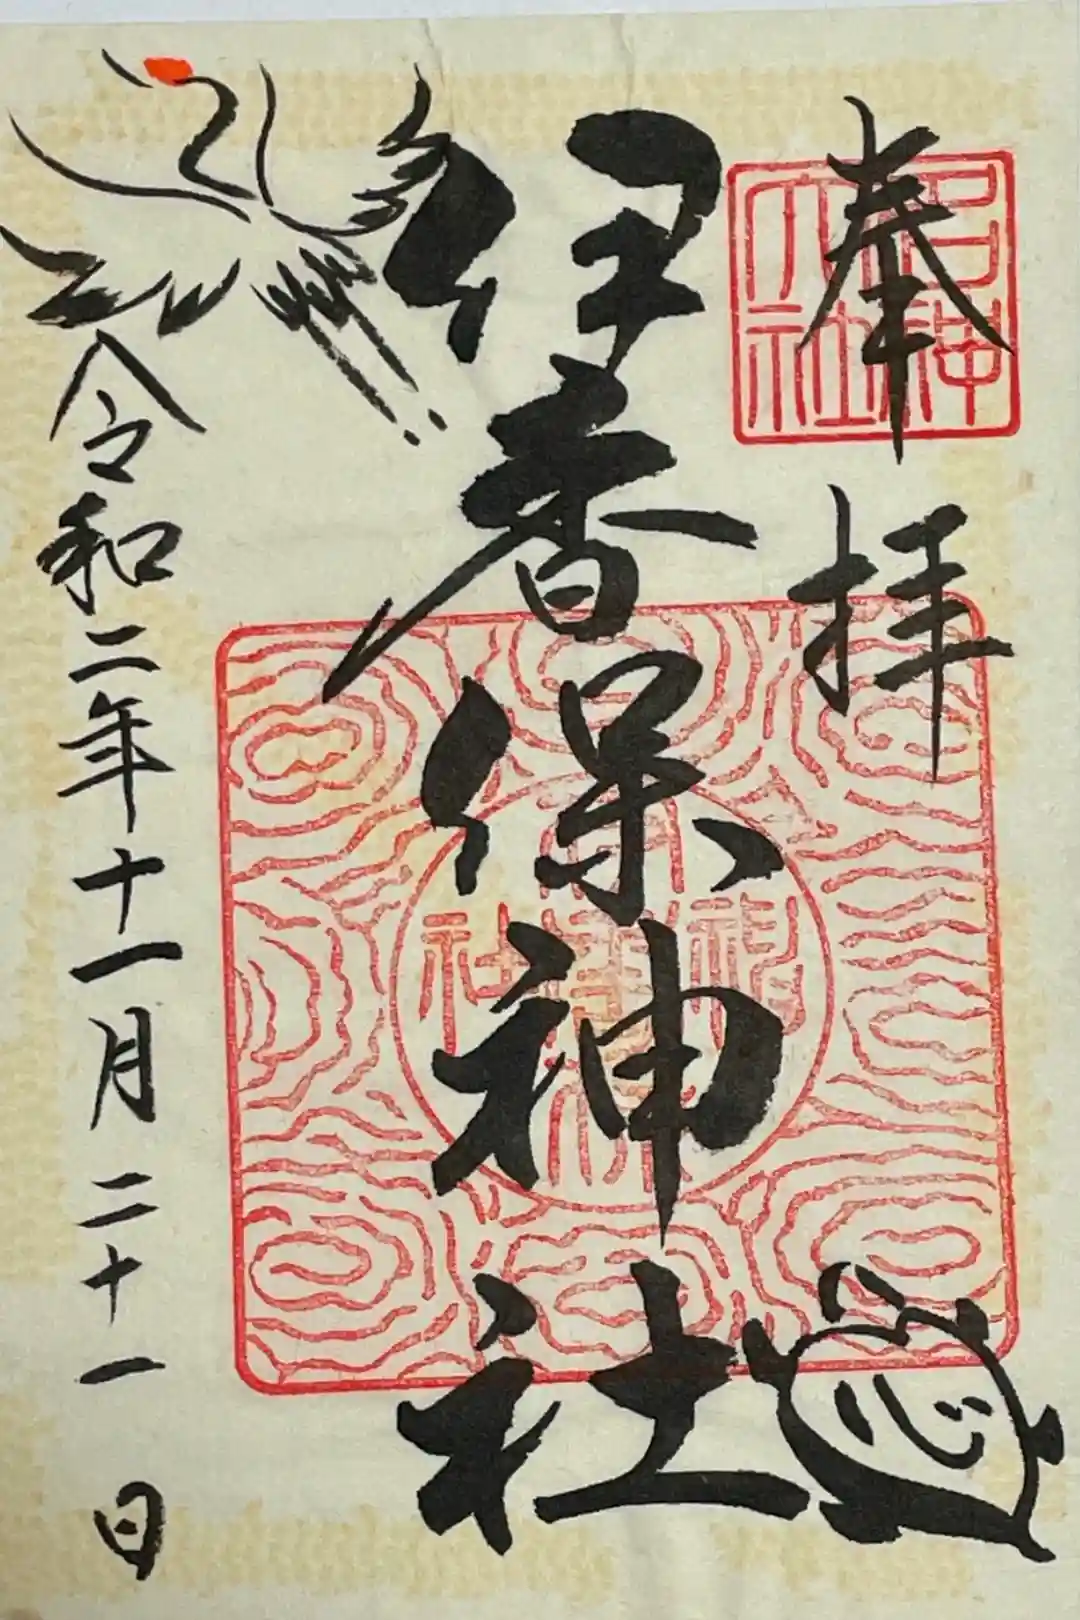 奉拝
名神
大社
伊香保神社
令和二年十一月二十一日